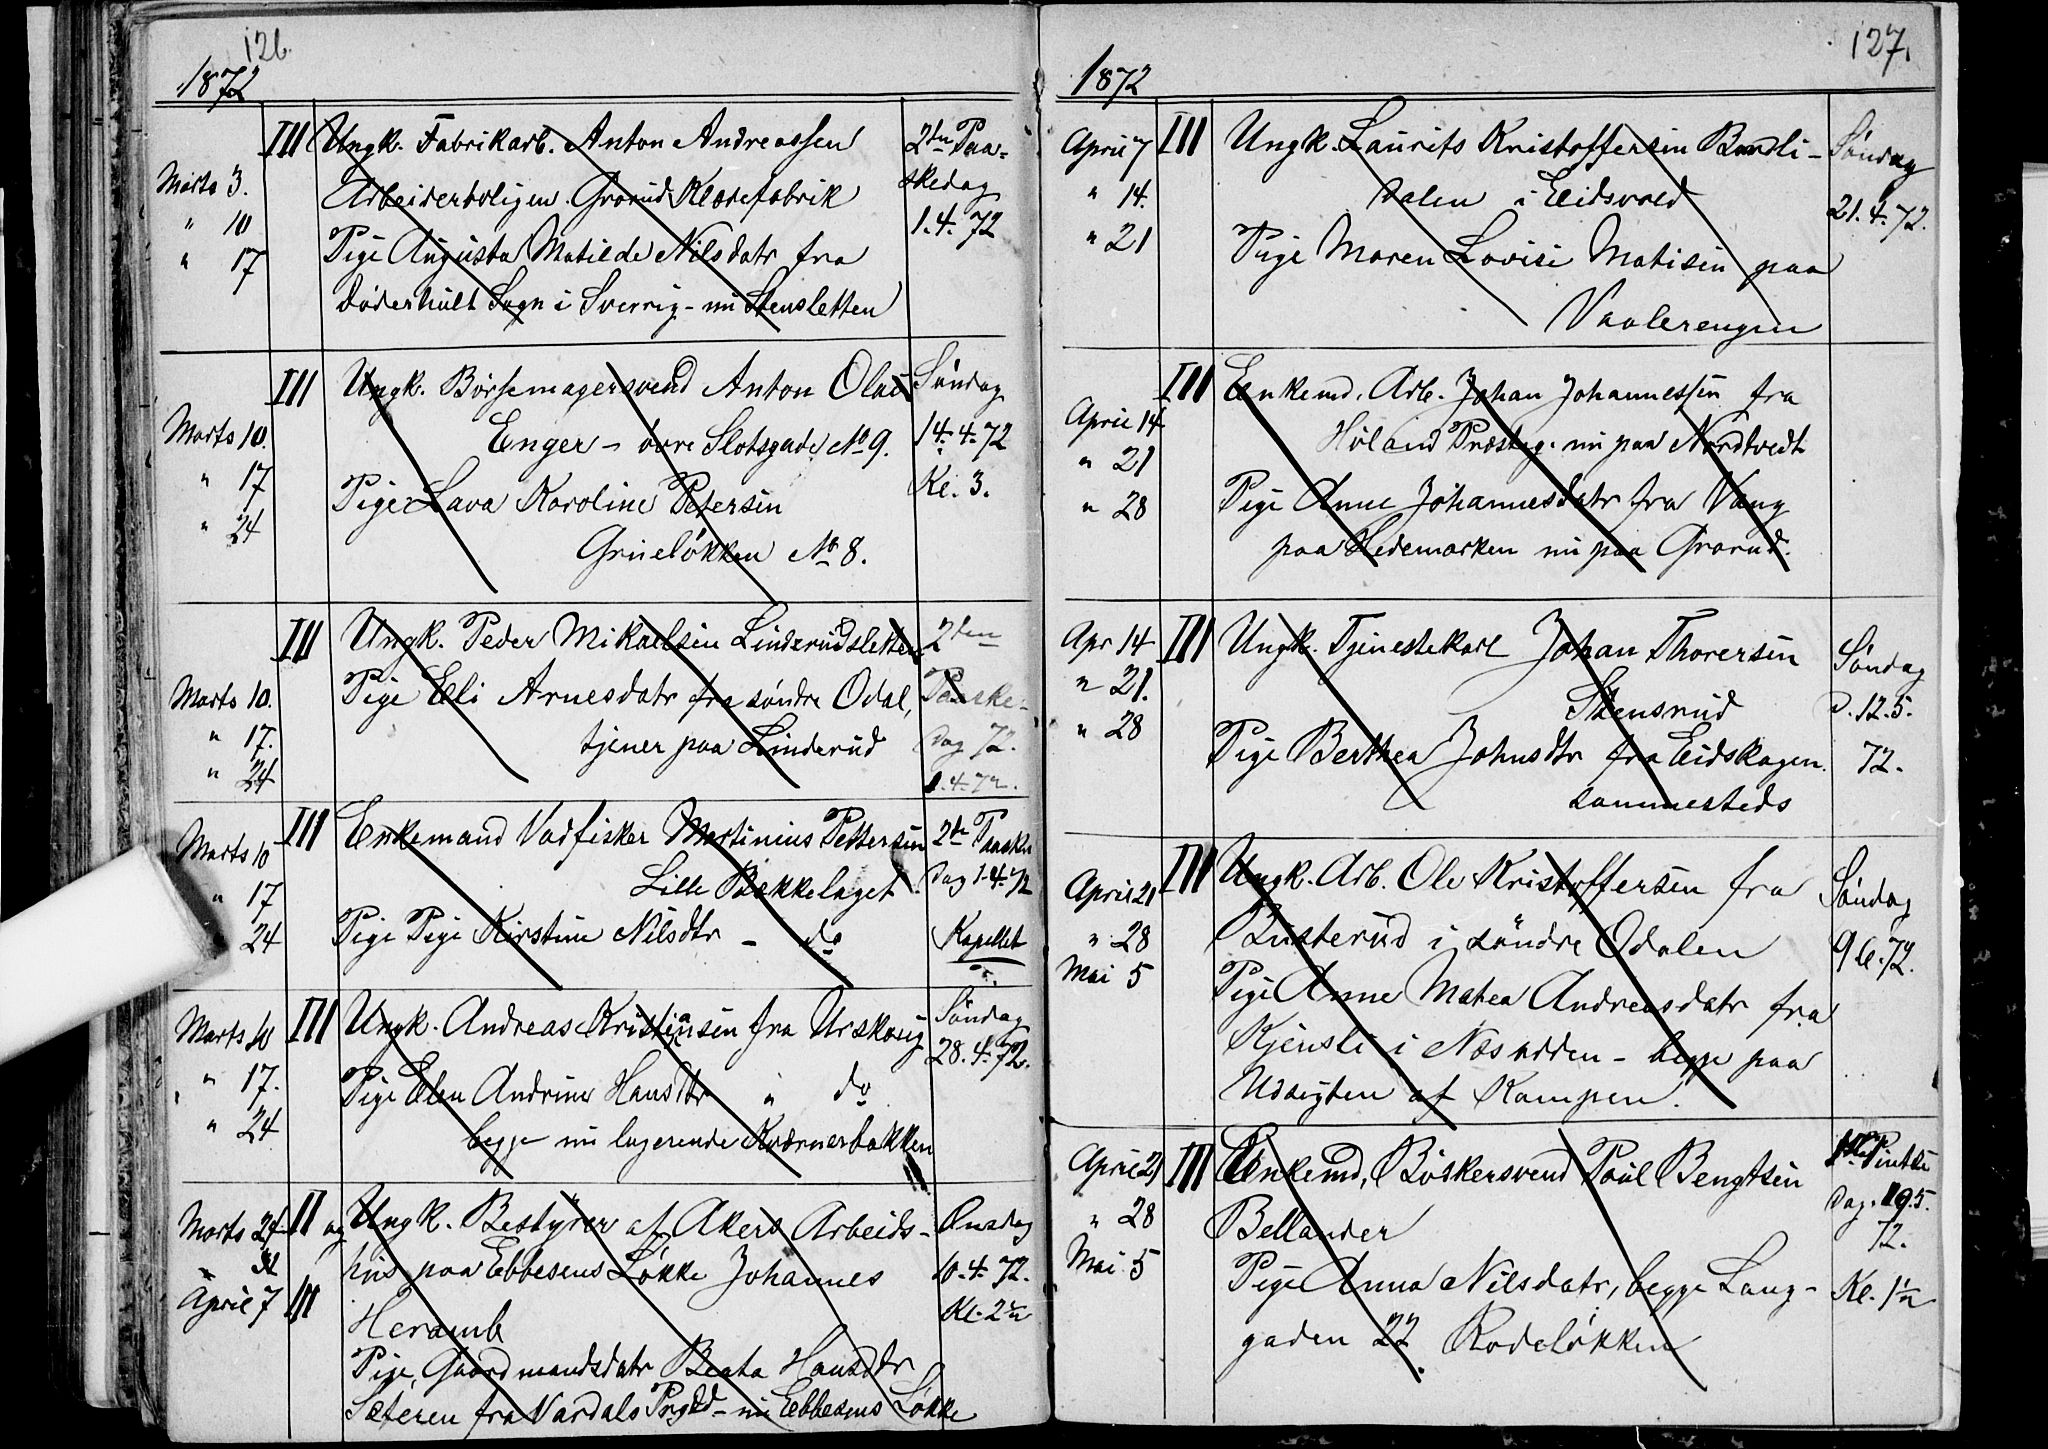 126.
1872
Marts 3.
" 10
" 17
III
Ungk. Fabrikarb. Anton Andreassen
Arbeiderboligen. Grorud Klædefabrik
Pige Augusta Matilde Nilsdatr fra
Döderhült Sogn i Sverrig - nu Stensletten
2den Paa-
skedag
1.4.72
Marts 10.
" 17
" 24
III
Ungk. Börsemagersvend Anton Olai
Enger - övre Slotsgade No 9.
Pige Lava Karoline Petersen
Grüneløkken No 8.
Søndag
14.4.72
Kl. 3.
Marts 10.
" 17.
" 24
III
Ungk. Peder Mikaelsen Linderudsletten
Pige Eli Arnesdatr fra søndre Odal,
tjener paa Linderud
2den
Paaske-
Dag 72.
1.4.72.
Marts 10
" 17
24
III
Enkemand Vadfisker Martinius Pettersen
Lille Bækkelaget
Pige Pige Kirstine Nilsdtr - do
2de Paaske
Dag 1.4.72
Kapellet
Marts 10
" 17.
" 24
III
Ungk. Andreas Kristiansen fra Urskoug
Pige Elen Andrine Hansdtr " do
begge nu logerende Kværnerbakken
Søndag
28.4.72.
Marts 24
" 31
April 7
II og
III
Ungk. Bestyrer af Akers Arbeids-
hus paa Ebbesens Løkke Johannes
Heramb
Pige, Gaardmandsdatr Beata Hansdtr
Sæteren fra Vardals Prgjd - nu Ebbesens Løkke
Onsdag
10.4.72.
Kl. 2½
127.
1872
April 7
" 14.
" 21
III
Ungk. Laurits Kristoffersen Bundli-
dalen i Eidsvold
Pige Maren Lovise Matisen paa
Vaalerengen
Søndag
21.4.72.
April 14
" 21
" 28
III
Enkemd. Arb. Johan Johannessen fra
Høland Præsteg. nu paa Nordtvedt
Pige Anne Johannesdatr fra Vang
paa Hedemarken nu paa Grorud.
Apr 14
" 21.
" 28
III
Ungk. Tjenestekarl Johan Thoresen
Stensrud
Pige Berthea Johnsdtr fra Eidskogen.
sammesteds
Søndag
d. 12.5.
72.
April 21
" 28
Mai 5
III
Ungk. Arb. Ole Kristoffersen fra
Busterud i søndre Odalen
Pige Anne Matea Andreasdatr fra
Kjensli i Næs - begge paa
Udsigten af Kampen.
Søndag
9.6.72.
April 21
" 28
Mai 5
III
Enkemd, Bødkersvend Paul Bengtsen
Bellander
Pige Anna Nilsdatr, begge Lang-
gaden 22 Rodeløkken
1ste Pintse
Dag. 19.5.
72.
Kl. 1½